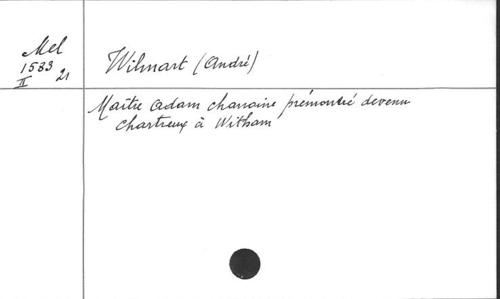 Mel
1533
II 21
Wilmart (André)
Maître Adam chanoine prémontré devenu
Chartreux à Witham